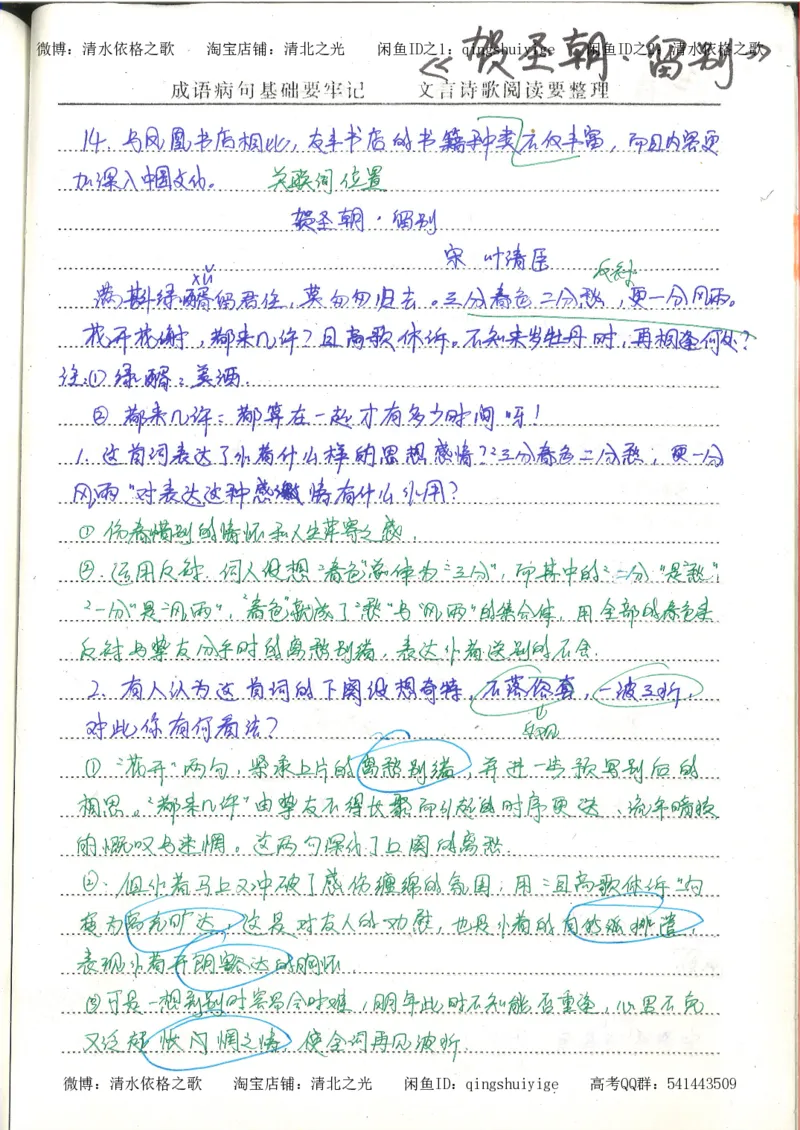 微博：清水依格之歌 淘宝店铺：清北之光 闲鱼ID之1：qingshuiyige 闲鱼ID之2：清水依格之歌
《贺圣朝·留别》
成语病句基础要牢记 文言诗歌阅读要整理
14. 与凤凰书店相比，友丰书店的书籍种类不仅丰富，而且内容更
加深入中国文化。 关联词位置
贺圣朝·留别
宋 叶清臣
xǔ 反衬
满斟绿醑留君住，莫匆匆归去。三分春色二分愁，更一分风雨。
花开花谢，都来几许？且高歌休诉。不知来岁牡丹时，再相逢何处？
注：① 绿醑：美酒.
② 都来几许：都算在一起才有多少时间呀！
1. 这首词表达了作者什么样的思想感情？“三分春色二分愁，更一分
风雨”对表达这种感情有什么作用？
① 伤春惜别的情怀和人生萍寄之感.
②. 运用反衬. 词人设想“春色”总体为“三分”，而其中的“二分”是愁”，
“一分”是“风雨”，“春色”就成了“愁”与“风雨”的集合体，用全部的春色来
反衬与挚友分手时的离愁别绪，表达作者送别的不舍.
2. 有人认为这首词的下阕设想奇特，不落俗套，一波三折，
对此你有何看法？
① “花开”两句，紧承上片的离愁别绪，并进一步预写别后的
相思。“都来几许”由挚友不得长聚而引起的时序更迭、流年暗换
的慨叹与来惆。这两句深化了上阕的离愁.
②. 但作者马上又冲破了感伤缠绵的氛围，用“且高歌休诉”句
表现作者开朗豁达的胸怀.
③ 可是一想到别时容易会时难，明年此时不知能否重逢，心里不免
又泛起怅惘之情，使全词再见波折.
微博：清水依格之歌 淘宝店铺：清北之光 闲鱼ID：qingshuiyige 高考QQ群：541443509